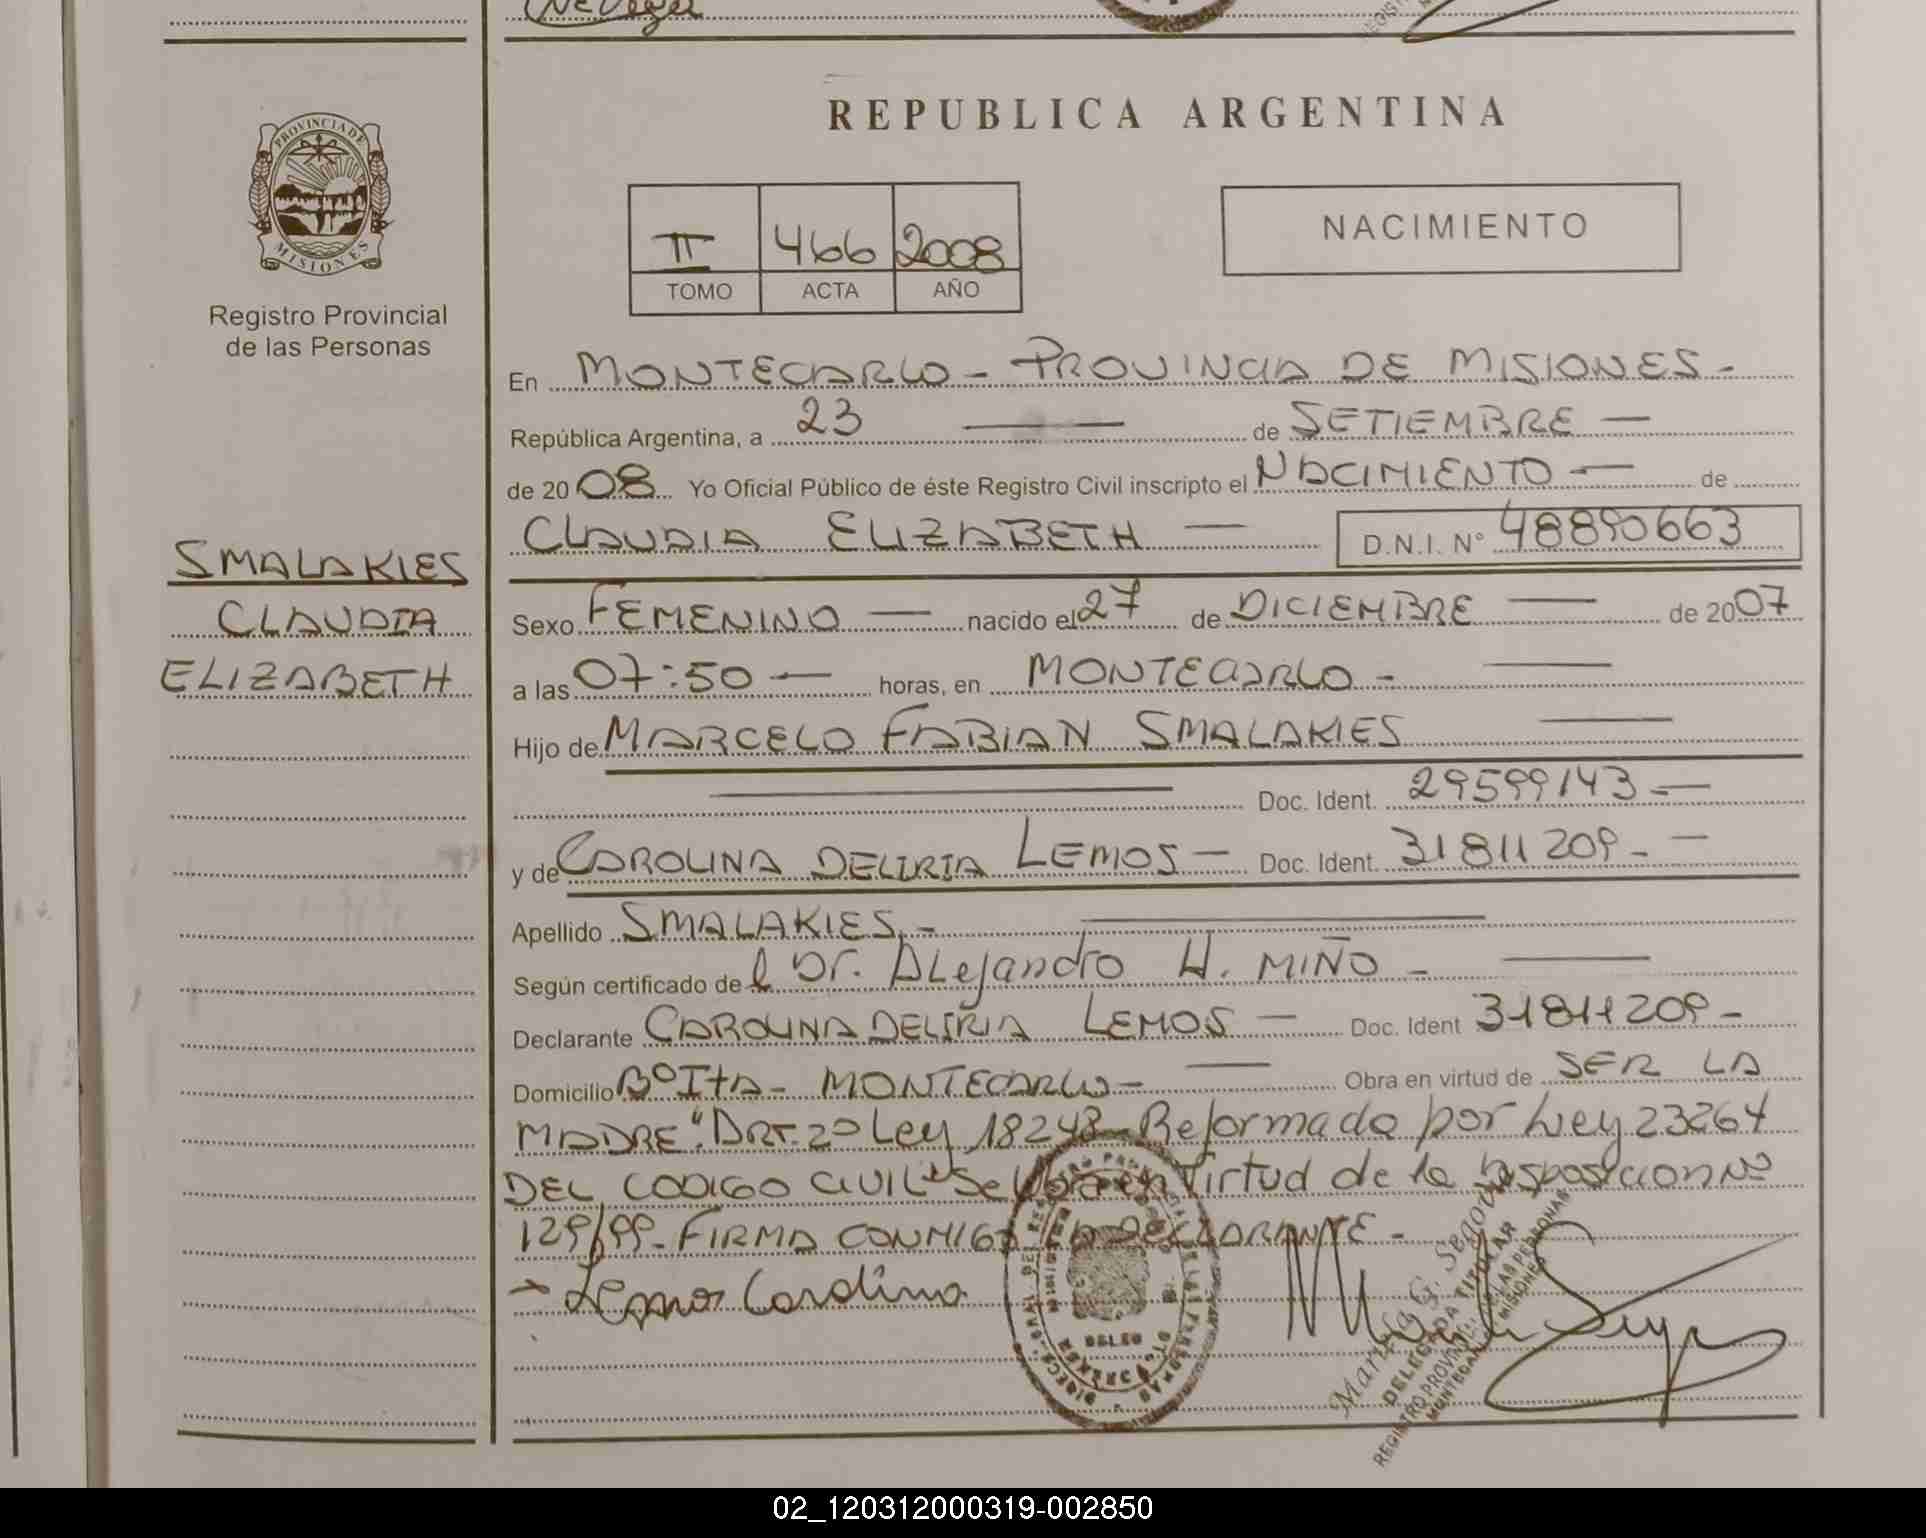 PROVINCIA DE
MISIONES
Registro Provincial
de las Personas
SMALAKIES
CLAUDIA
ELIZABETH
REPUBLICA ARGENTINA
II 466 2008
TOMO ACTA AÑO
NACIMIENTO
En MONTECARLO - PROVINCIA DE MISIONES -
República Argentina, a 23 — de SETIEMBRE —
de 20 08 Yo Oficial Público de éste Registro Civil inscripto el NACIMIENTO — de
CLAUDIA ELIZABETH — D.N.I. Nº 48890663
Sexo FEMENINO — nacido el 27 de DICIEMBRE — de 20 07
a las 07:50 — horas, en MONTECARLO - —
Hijo de MARCELO FABIAN SMALAKIES —
— Doc. Ident. 29599143 - —
y de CAROLINA DELIRIA LEMOS — Doc. Ident. 31811209 - —
Apellido SMALAKIES - —
Según certificado de l Dr. Alejandro H. MIÑO - —
Declarante CAROLINA DELIRIA LEMOS — Doc. Ident 31811209 -
Domicilio Bº Ita - MONTECARLO - — Obra en virtud de SER LA
MADRE "ART. 2º Ley 18248 Reformado por Ley 23264
DEL CODIGO CIVIL" Se en Virtud de la Disposicion Nº
129/99 - FIRMA CONMIGO LA DECLARANTE -
Lemos Carolina
Marta G. Segovia
DELEGADA TITULAR
REGISTRO PROVINCIAL DE LAS PERSONAS
MONTECARLO MISIONES
02_120312000319-002850